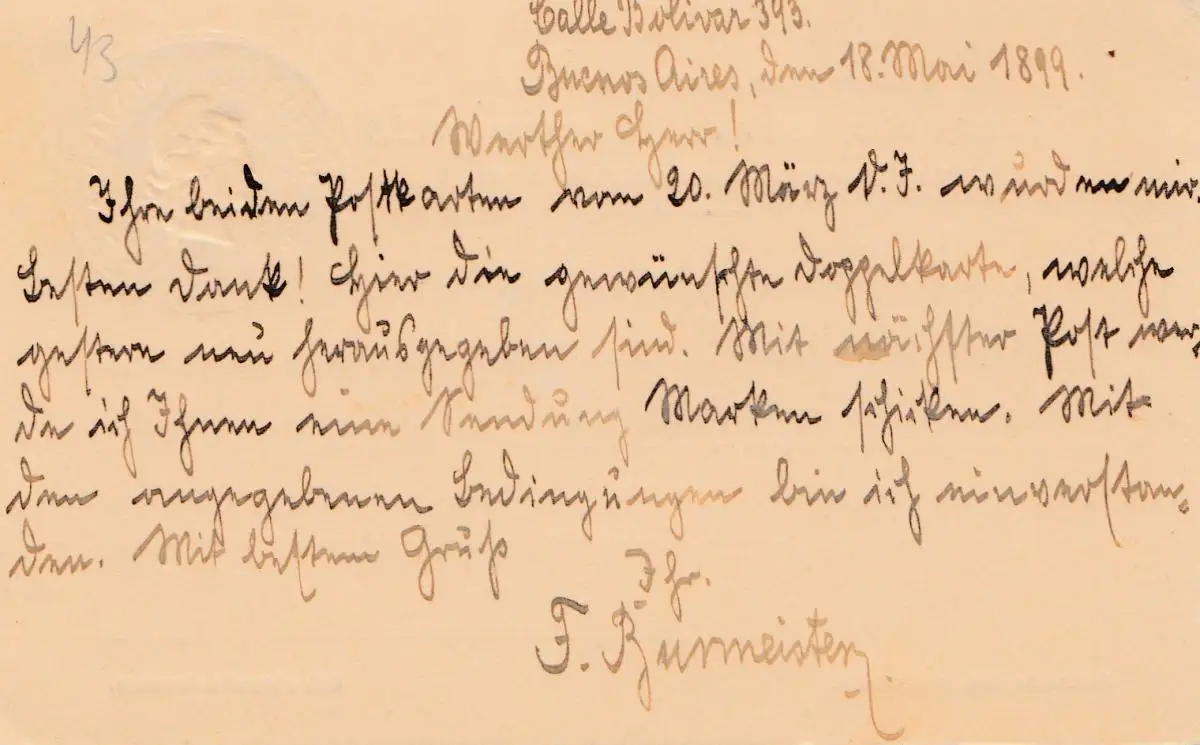 43
Calle Bolivar 393.
Buenos Aires, den 18. Mai 1899.
Werther Herr!
Ihre beiden Postkarten vom 20. März d. J. wurden mir.
Besten Dank! Hier die gewünschte Doppelkarte, welche
gestern neu herausgegeben sind. Mit nächster Post wer-
de ich Ihnen eine Sendung Marken schicken. Mit
den angegebenen Bedingungen bin ich einverstan-
den. Mit bestem Gruß
Ihr.
F. Burmeister.